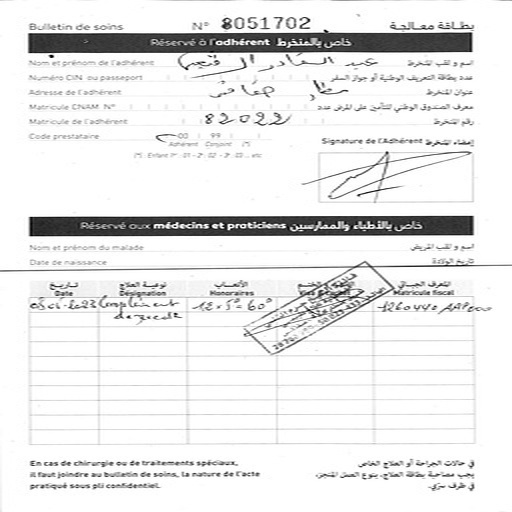 Bulletin de soins N° 8051702 بطاقة معالجة
Réservé à l'adhérent خاص بالمنخرط
Nom et prénom de l'adhérent عبد القادر اسم و لقب المنخرط
Numéro CIN ou passeport عدد بطاقة التعريف الوطنية أو جواز السفر
Adresse de l'adhérent صفاقس عنوان المنخرط
Matricule CNAM N° معرف الصندوق الوطني للتأمين على المرض عدد
Matricule de l'adhérent 82022 رقم المنخرط
Code prestataire 00 99
Adhérent Conjoint (*)
(*) : Enfant 1er : 01 - 2e : 02 - 3e : 03 ... etc
Signature de l'Adhérent إمضاء المنخرط
Réservé aux médecins et praticiens خاص بالأطباء والممارسين
Nom et prénom du malade اسم و لقب المريض
Date de naissance تاريخ الولادة
تاريخ نوعية العلاج الأتعاب المعرف الجبائي
Date Désignation Honoraires Matricule fiscal
Complément 12 x 5° = 60°
En cas de chirurgie ou de traitements spéciaux,
il faut joindre au bulletin de soins, la nature de l'acte
pratiqué sous pli confidentiel.
في حالات الجراحة أو العلاج الخاص
يجب مصاحبة بطاقة العلاج، بنوع العمل المنجز،
في ظرف سرّي.